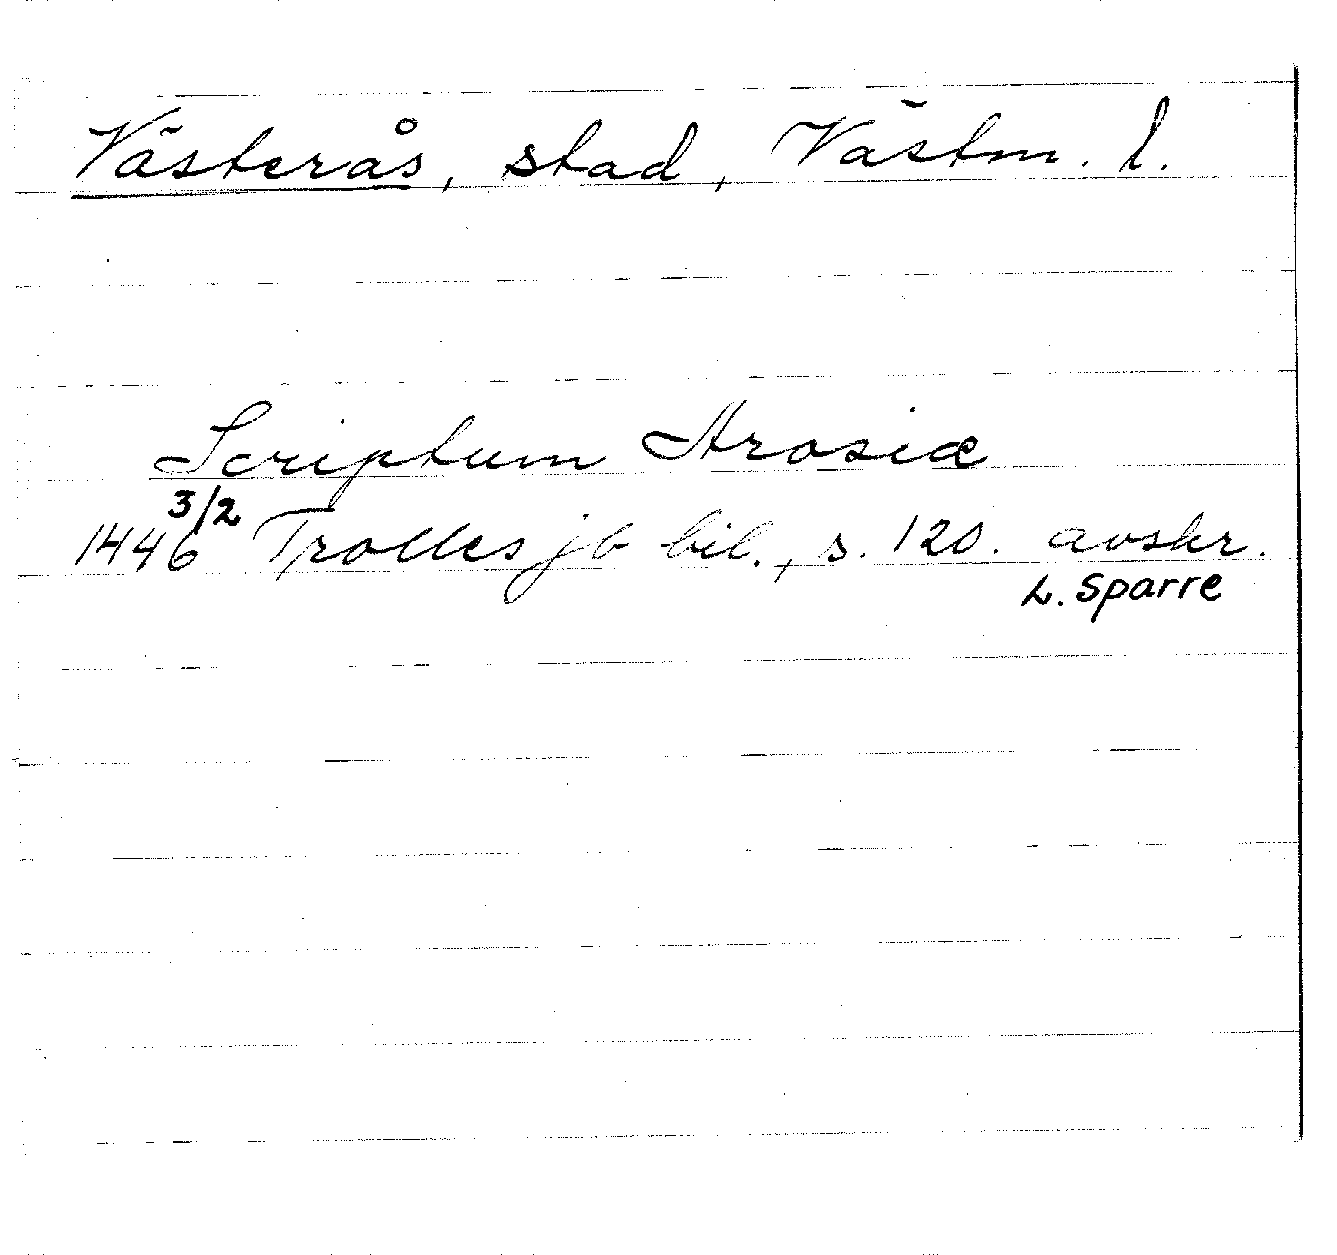 Västerås, stad, Västm. l.
Scriptum Arosiæ
3/2
1446 Trolles jb bil., s. 120. avskr.
L. Sparre